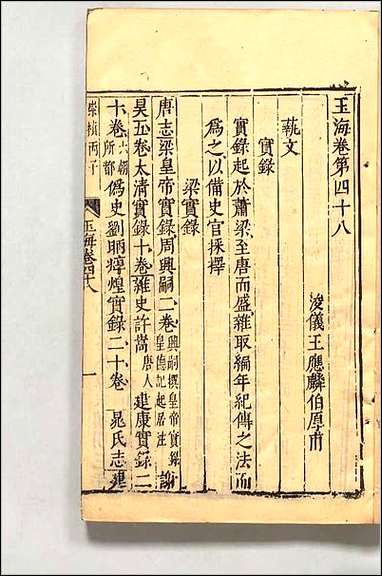 玉海卷第四十八
浚儀王應麟伯厚甫
藝文
實錄
實錄起於蕭梁至唐而盛雜取編年紀傳之法而
為之以備史官採擇
梁實錄
唐志梁皇帝實錄周興嗣二卷興嗣撰皇帝實錄皇德記起居注謝
昊五卷太清實錄十卷雜史許嵩唐人建康實錄二
十卷六朝所都偽史劉昞燉煌實錄二十卷 晁氏志建
崇禎丙子
玉海卷四十八
一